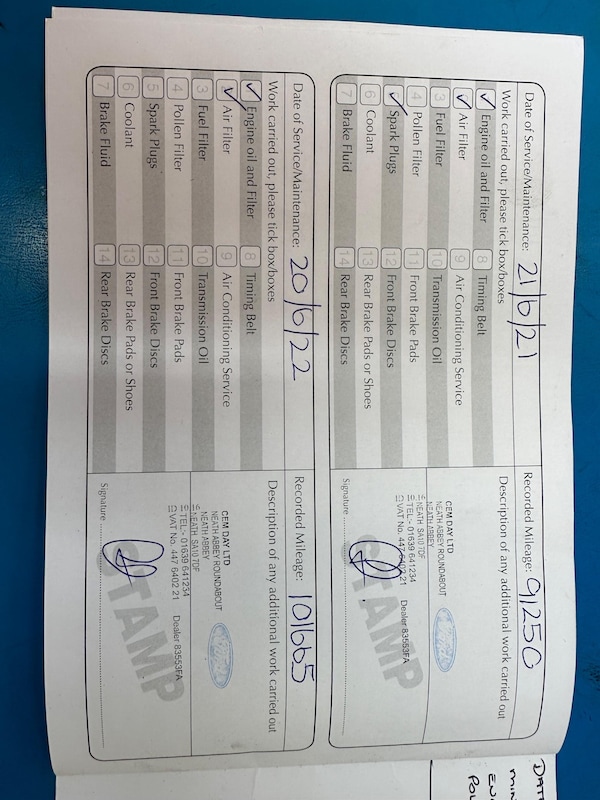 Date of Service/Maintenance: 21/6/21
Recorded Mileage: 91250
Work carried out, please tick box/boxes
Description of any additional work carried out
✓ Engine oil and Filter
8 Timing Belt
✓ Air Filter
9 Air Conditioning Service
3 Fuel Filter
10 Transmission Oil
4 Pollen Filter
11 Front Brake Pads
✓ Spark Plugs
12 Front Brake Discs
6 Coolant
13 Rear Brake Pads or Shoes
7 Brake Fluid
14 Rear Brake Discs
CEM DAY LTD
NEATH ABBEY ROUNDABOUT
NEATH ABBEY
NEATH, SA10 7DF
TEL:- 01639 641234
VAT No. 447 6402 21 Dealer 83553FA
STAMP
Signature
Date of Service/Maintenance: 20/6/22
Recorded Mileage: 101665
Work carried out, please tick box/boxes
Description of any additional work carried out
✓ Engine oil and Filter
8 Timing Belt
✓ Air Filter
9 Air Conditioning Service
3 Fuel Filter
10 Transmission Oil
4 Pollen Filter
11 Front Brake Pads
5 Spark Plugs
12 Front Brake Discs
6 Coolant
13 Rear Brake Pads or Shoes
7 Brake Fluid
14 Rear Brake Discs
CEM DAY LTD
NEATH ABBEY ROUNDABOUT
NEATH ABBEY
NEATH, SA10 7DF
TEL:- 01639 641234
VAT No. 447 6402 21 Dealer 83553FA
STAMP
Signature